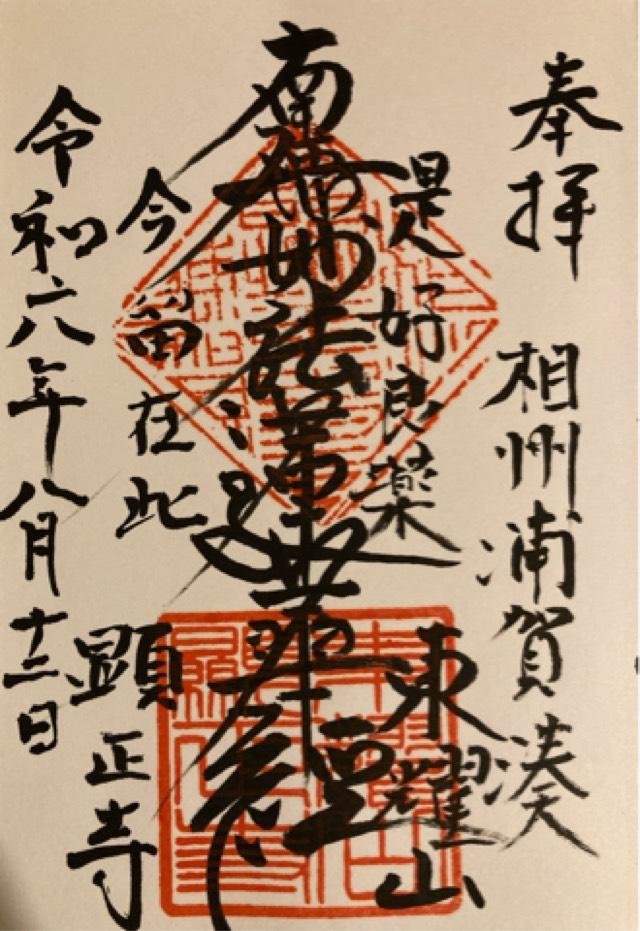 奉拝 相州浦賀湊
是好良薬
東耀山
南無妙法蓮華経
今留在此
顕正寺
令和六年八月十三日